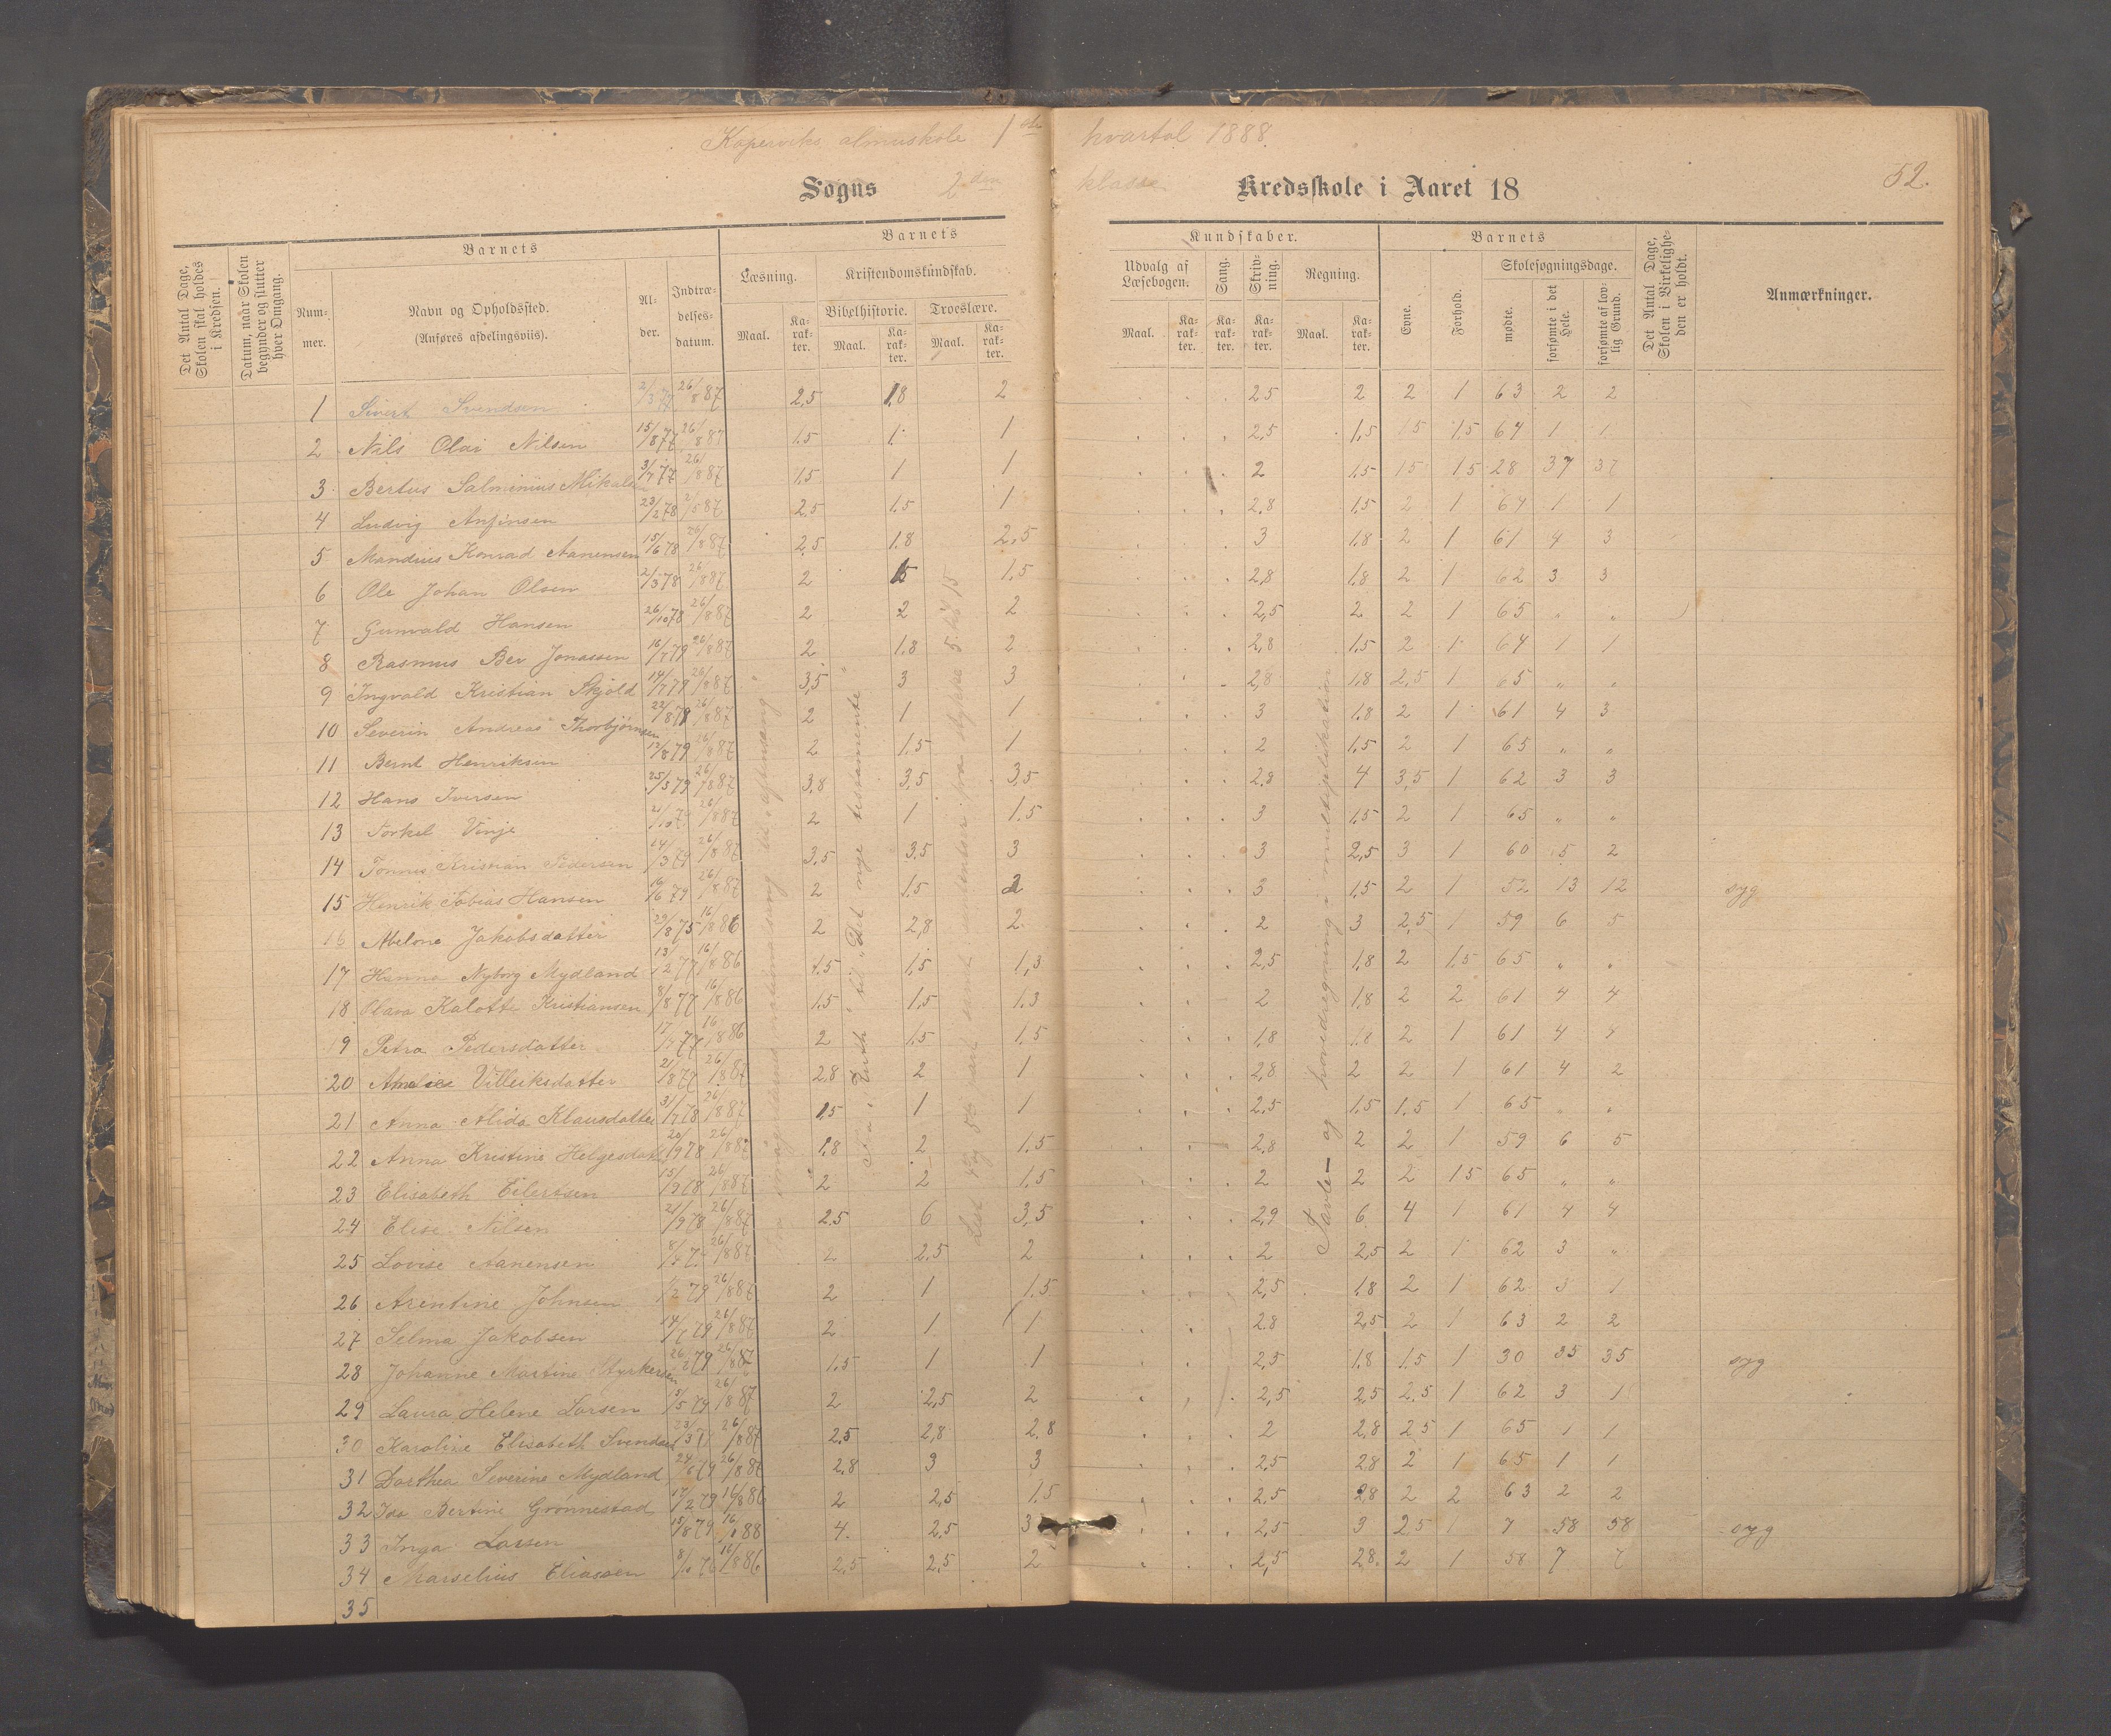 Koperviks almuskole 1ste hvartal 1888.
Sogns 2den klasse Kredsskole i Aaret 18 52.
Det Antal Dage, Skolen skal holdes i Kredsen.
Datum, naar Skolen begynder og slutter hver Omgang.
Barnets
Nummer.
Navn og Opholdssted.
(Anføres afdelingsviis).
Alder.
Indtrædelsesdatum.
Barnets Kundskaber.
Læsning.
Maal.
Karakter.
Kristendomskundskab.
Bibelhistorie.
Maal.
Karakter.
Troeslære.
Maal.
Karakter.
Udvalg af Læsebogen.
Maal.
Karakter.
Sang.
Karakter.
Skrivning.
Karakter.
Regning.
Maal.
Karakter.
Barnets
Evne.
Forhold.
Skolesøgningsdage.
mødte.
forsømte i det Hele.
forsømte af lovlig Grund.
Det Antal Dage, Skolen i Virkeligheden er holdt.
Anmærkninger.
1 Sivert Svendsen 2/3 77 26/8 87 2,5 1,8 2 2,5 2 2 1 63 2 2
2 Nils Olai Nilsen 15/8 77 26/8 87 1,5 1 1 2,5 1,5 1,5 1,5 64 1 1
3 Bertus Salminius 3/7 77 26/8 87 1,5 1 1 2 1,5 1,5 1,5 28 37 37
4 Ludvig Anfinsen 23/2 78 2/5 87 2,5 1,5 1 2,8 1,5 2 1 64 1 1
5 Mandius Konrad Aanensen 15/6 78 26/8 87 2,5 1,8 2,5 3 1,8 2 1 61 4 3
6 Ole Johan Olsen 2/3 78 26/8 87 2 1,5 1,5 2,8 1,8 2 1 62 3 3
7 Gunvald Hansen 26/10 78 26/8 87 2 2 2 2,5 2 2 1 65 " "
8 Rasmus Ber Jonassen 16/7 79 26/8 87 2 1,8 2 2,8 1,5 2 1 64 1 1
9 Ingvald Kristian Skjold 14/7 79 26/8 87 3,5 3 3 2,8 1,8 2,5 1 65 " "
10 Severin Andreas Thorbjørnsen 22/8 79 26/8 87 2 1 1 3 1,8 2 1 61 4 3
11 Bernt Henriksen 12/8 79 26/8 87 2 1,5 1 2 1,5 2 1 65 " "
12 Hans Iversen 25/3 79 26/8 87 3,8 3,5 3,5 2,8 4 3,5 1 62 3 3
13 Torkel Vinje 26/8 87 2 1 1,5 3 1,5 2 1 65 " "
14 Tønnes Kristian Pedersen 14/3 79 26/8 87 3,5 3,5 3 3 2,5 3 1 60 5 2
15 Henrik Tobias Hansen 16/6 79 26/8 87 2 1,5 2 3 1,5 2 1 52 13 12 syg
16 Abelone Jakobsdatter 29/8 75 16/8 86 2 2,8 2 2 3 2,5 1 59 6 5
17 Hanna Nyborg Mydland 13/12 77 16/8 86 1,5 1,5 1,3 2,5 1,8 2 1,5 65 " "
18 Olava Kalotte Kristiansen 8/8 77 16/8 86 1,5 1,5 1,3 2 1,8 2 2 61 4 4
19 Petra Pedersdatter 17/7 77 16/8 86 2 1,5 1,5 1,8 1,8 2 1 61 4 4
20 Amalie Villeiksdatter 21/8 77 26/8 87 2,8 2 1 2,8 2 2 1 61 4 2
21 Anna Alida Klausdatter 31/7 78 26/8 87 1,5 1 1 2,5 1,5 1,5 1 65 " "
22 Anna Kristine Helgesdatter 20/9 78 26/8 87 1,8 2 1,5 2,8 2 2 1 59 6 5
23 Elisabeth Eilertsen 15/9 78 26/8 87 2 2 1,5 2 2 2 1,5 65 " "
24 Elise Nilsen 21/9 78 26/8 87 2,5 6 3,5 2,9 6 4 1 61 4 4
25 Lovise Aanensen 26/8 87 2 2,5 2 2 2,5 2 1 62 3 "
26 Arentine Johnsen 26/8 87 2 1 1,5 2,5 1,8 2 1 62 3 1
27 Selma Jakobsen 26/8 87 2 1 1 2,8 2,5 2 1 63 2 2
28 Johanne Martine Styrkersen 26/2 79 26/8 87 1,5 1 1 2,5 1,8 1,5 1 30 35 35 syg
29 Laura Helene Larsen 5/5 79 26/8 87 2 2,5 2 2,5 2,5 2,5 1 62 3 1
30 Karoline Elisabeth Svendsen 26/8 87 2,5 2,8 2,8 2 2,8 2,5 1 65 1 1
31 Dorthea Severine Mydland 26/8 87 2,8 3 3 2,5 2,8 2 1 65 1 1
32 Ida Bertine Grønnestad 17/2 79 16/8 86 2 2,5 1,5 2,5 2,8 2 2 63 2 2
33 Inga Larsen 15/8 79 16/1 88 4 2,5 3 2,5 3 2,5 1 7 58 58 syg
34 Marselius Eliassen 16/8 86 2,5 2,5 2 2,5 2,8 2 1 58 7 7
35
Tavle- og hovedregning i multiplikation